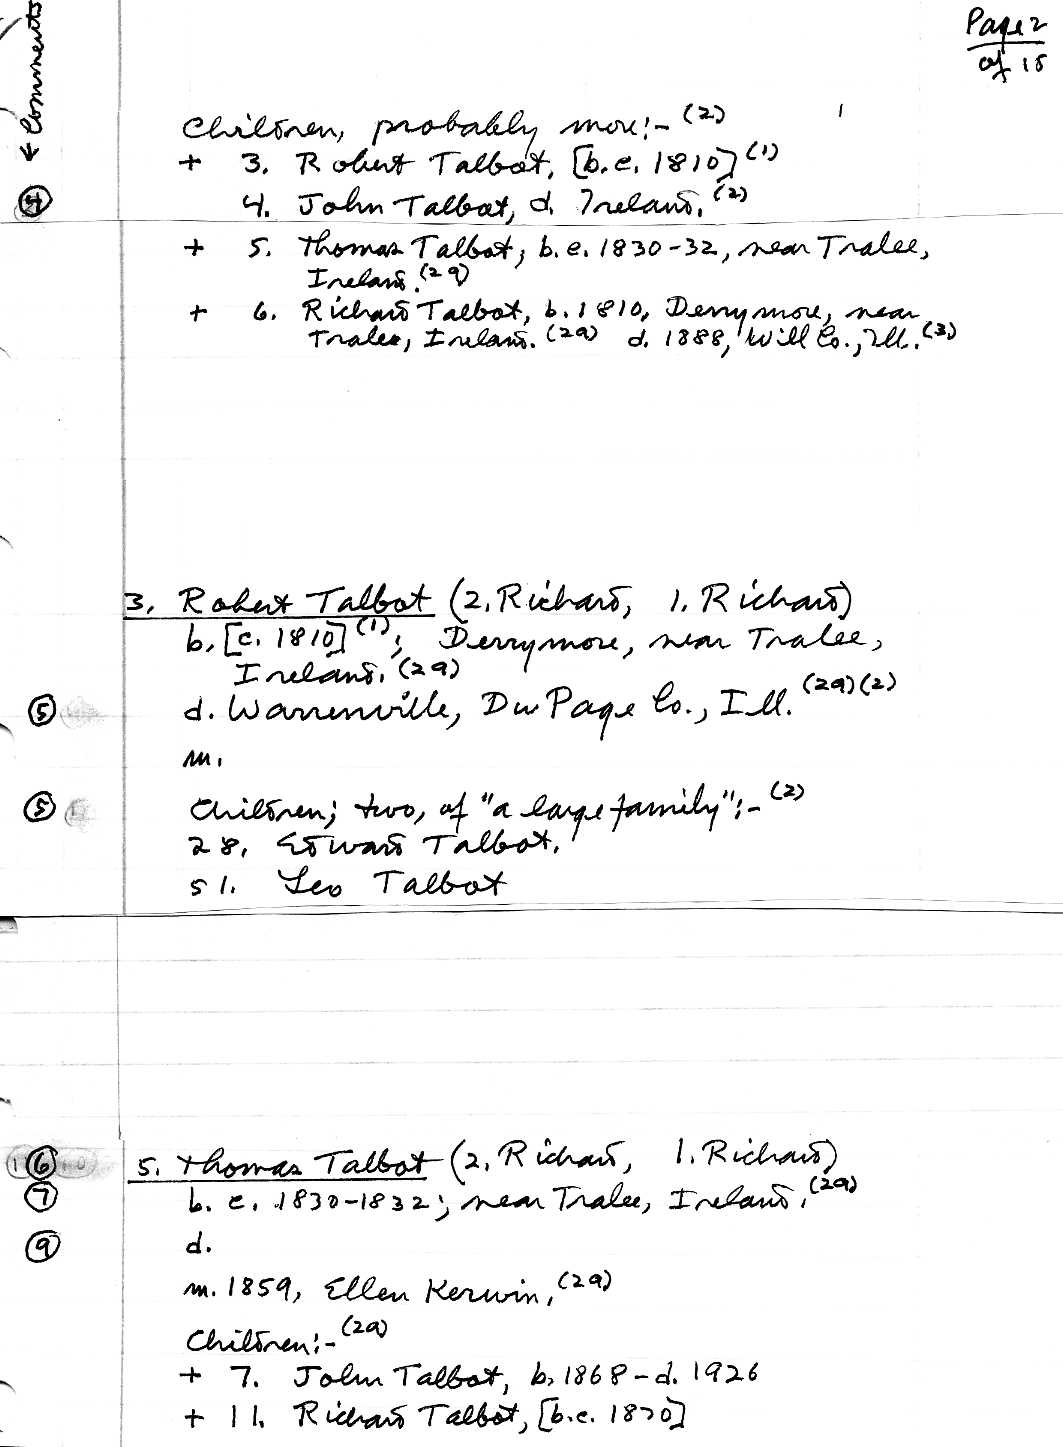 Page 2
of 15
← Comments
Children, probably more:- (2)
+ 3. Robert Talbot, [b.c. 1810] (1)
④ 4. John Talbot, d. Ireland. (2)
+ 5. Thomas Talbot, b.c. 1830-32, near Tralee,
Ireland. (2a)
+ 6. Richard Talbot, b. 1810, Derrymore, near
Tralee, Ireland. (2a) d. 1888, Will Co., Ill. (3)
3. Robert Talbot (2. Richard, 1. Richard)
b. [c. 1810] (1); Derrymore, near Tralee,
Ireland. (2a)
⑤ d. Warrenville, DuPage Co., Ill. (2a) (2)
m.
⑤ Children; two, of "a large family":- (2)
28. Edward Talbot.
51. Leo Talbot
⑥ 5. Thomas Talbot (2. Richard, 1. Richard)
⑦ b. c. 1830-1832; near Tralee, Ireland. (2a)
⑨ d.
m. 1859, Ellen Kerwin, (2a)
Children:- (2a)
+ 7. John Talbot, b. 1868 - d. 1926
+ 11. Richard Talbot, [b.c. 1870]